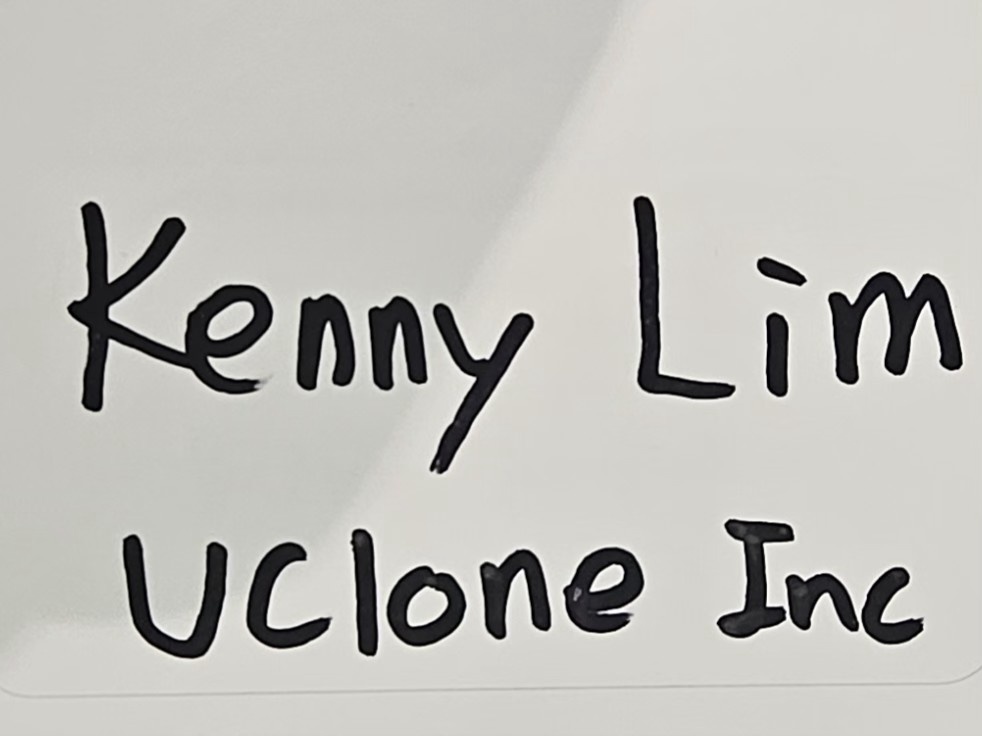 Kenny Lim
UClone Inc